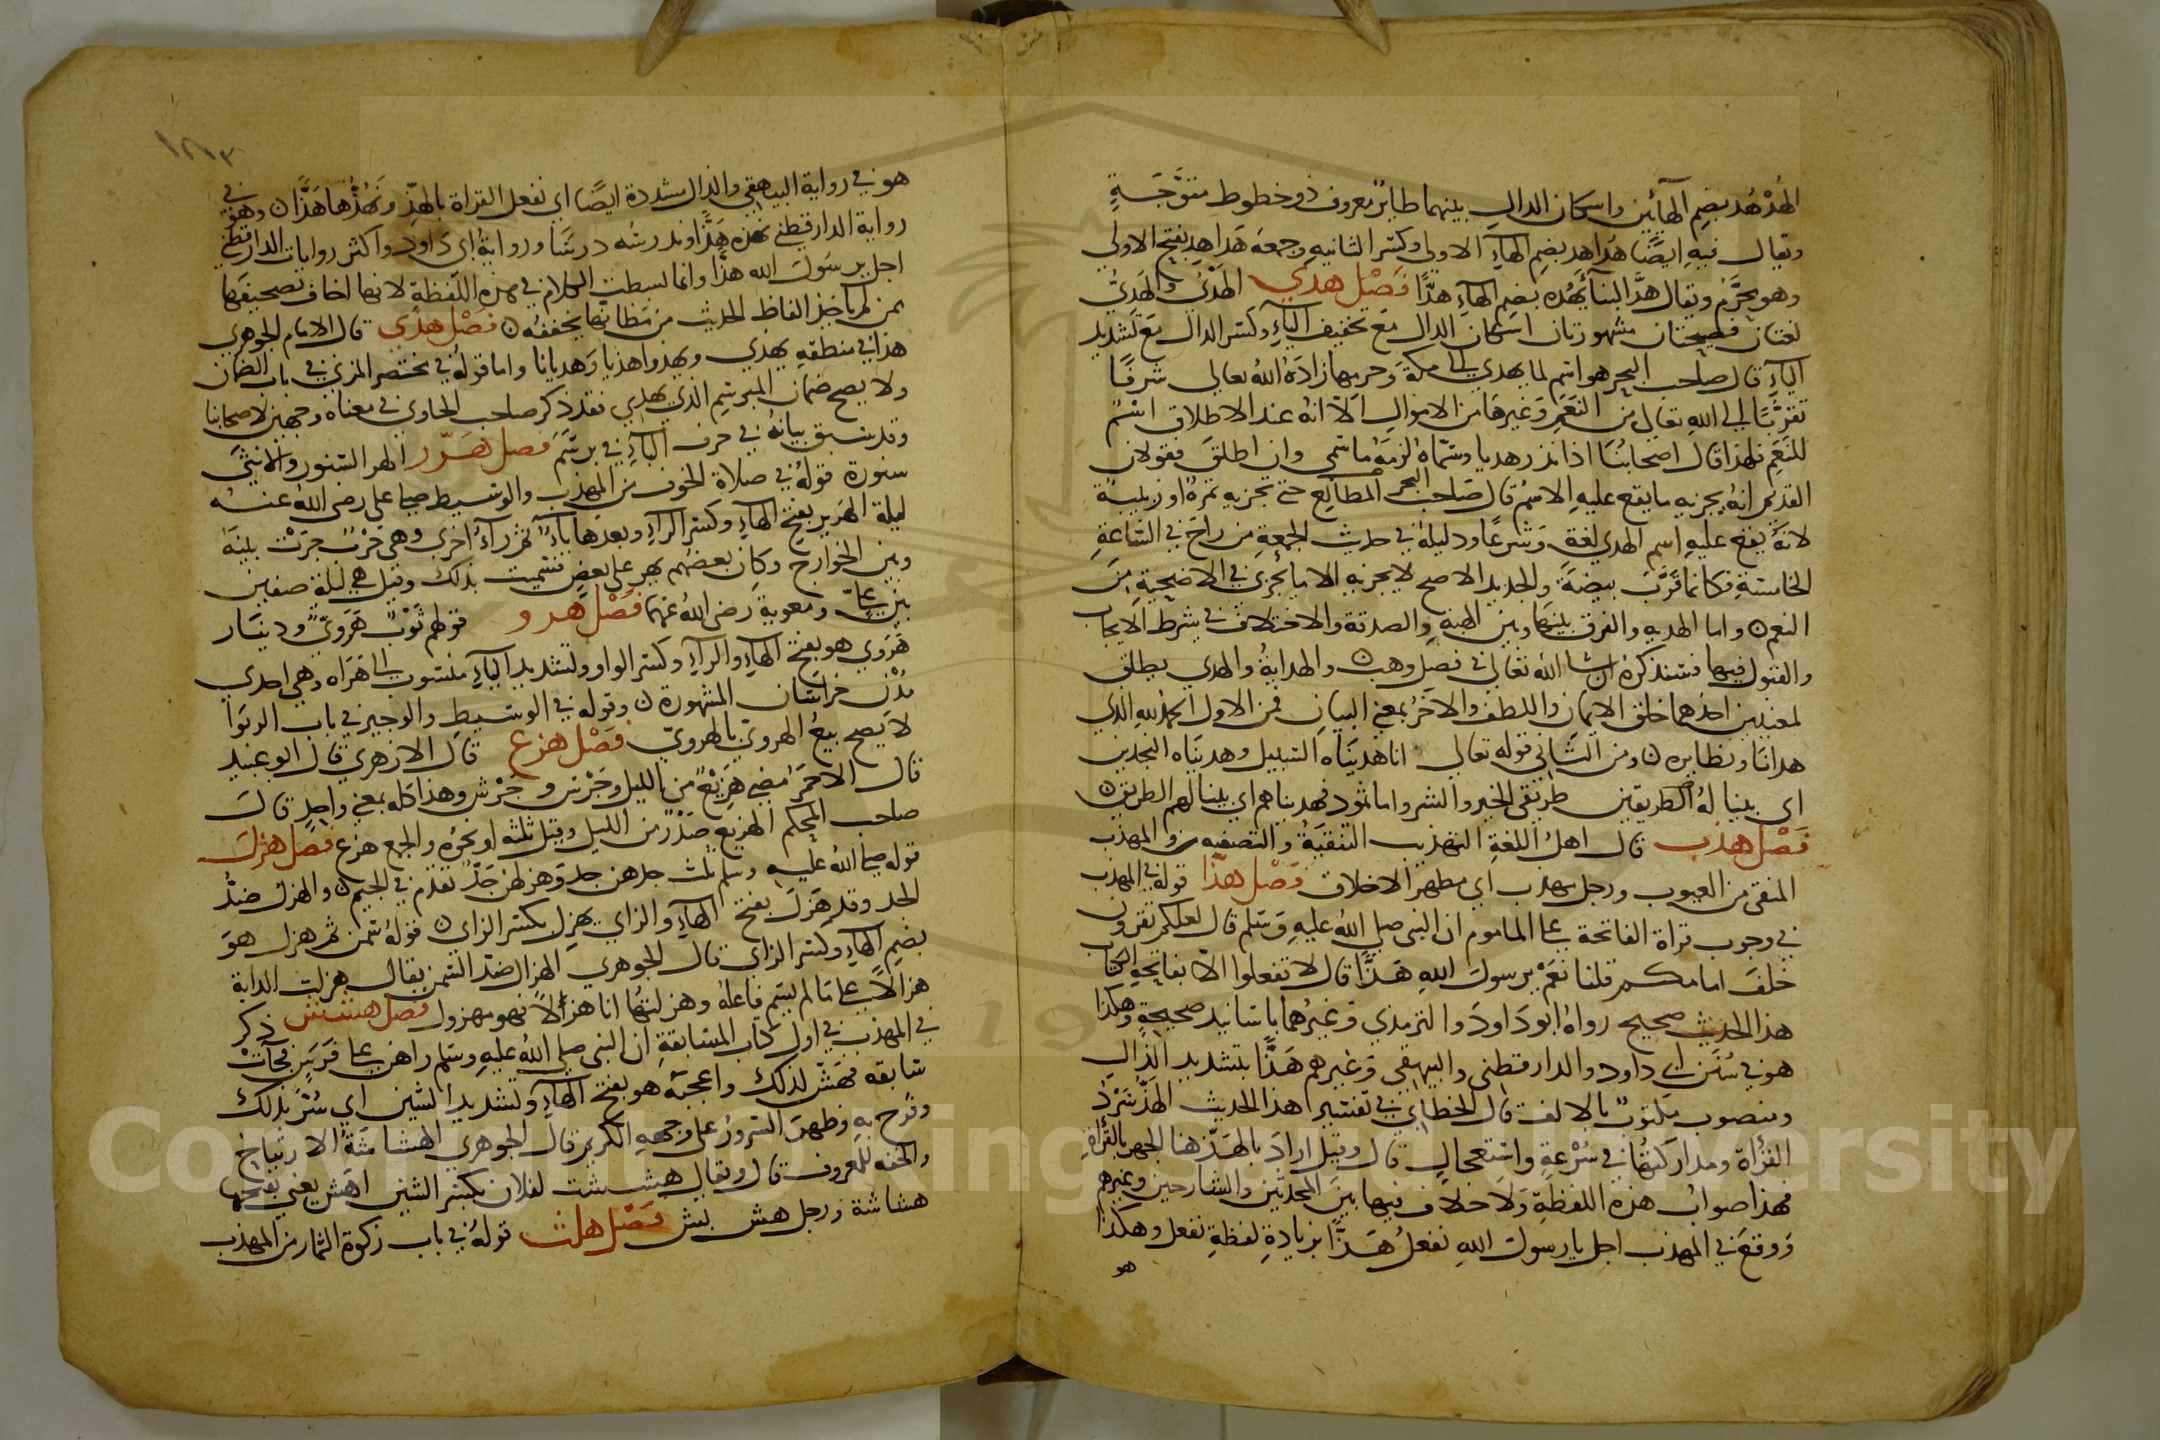 الهُدْهُد بضم الهائين واسكان الدال بينهما طاير معروف ذو خطوط متوجة
ويقال فيه ايضًا هداهد بضم الهاء الاولى وكسر الثانيه وجمعه هَداهِد بفتح الاولى
وهو محرم ويقال هدَّ البناء يهُده بضم الهاء هدًّا فصْل هدي الهَدْيُ والهَدِيُّ
لغتان فصيحتان مشهورتان اسكان الدال مع تخفيف الياء وكسر الدال مع تشديد
الياء قال صاحب البحر هو اسم لما يهدي الى مكة وحرمها زاده الله تعالى شرفًا
تقربًا الى الله تعالى من النعَم وغيرها من الاموال الا انه عند الاطلاق اسْم
للنعَم فلهذا قال اصحابُنا اذا نذر هديا وسمّاه لزمه ما سمى وان اطلق فقولان
القديم انه يجزيه ما يقع عليه الاسم قال صاحب البحر المطالع حتى تجزيه تمرة او زبيبة
لانه يقع عليه اسم الهدي لغة وشرعًا ودليله في حديث الجمعة من راح في الساعة
الخامسة فكانما قرَّبَ بيضةً والجديد الاصح لا يجزيه الا ما يجزي في الاضحية من
النعم ن واما الهديه والفرق بينها وبين الهبة والصدقة والاختلاف في شرط الايجاب
والقبول فيها فسنذكره ان شا الله تعالى في فصل وهب ن والهداية والهدي يطلق
لمعنيين احدهما خلق الايمان واللطف والاخر بمعنى البيان فمن الاول الحمد لله الذي
هدانا ونظايره ن ومن الثاني قوله تعالى انا هديناه السبيل وهديناه النجدين
اي بينا له الطريقين طريقي الخير والشر واما ثمود فهديناهم اي بينا لهم الطريق ن
فصْل هذب قال اهل اللغة التهذيب التنقية والتصفيه ن والمهذب
المنقى من العيوب ورجل مهذب اي مطهر الاخلاق فصْل هذا قوله في المهذب
في وجوب قراة الفاتحة على الماموم ان النبي صلى الله عليه وسلم قال لعلكم تقرون
خلفَ امامكم قلنا نعَمْ يرسولَ الله هَذًّا قال لا تفعلوا الا بفاتحة الكتاب
هذا الحديث صحيح رواه ابو داود والترمذي وغيرهما باسانيد صحيحة وهكذا
هو في سُنَن ابي داود والدارقطني والبيهقي وغيرهم هَذًّا بتشديد الذال
ومنصوب مكتوب بالالف قال الخطابي في تفسير هذا الحديث الهَذُّ سَرْدُ
القرأة ومداركتها في سُرْعة واستعجال قال وقيل اراد بالهَذّ هنا الجهر بالقرأة
فهذا صواب هذه اللفظة ولا خلاف فيها بين المحدثين والشارحين وغيرهم
ووقعَ في المهذب اجل يا رسول الله نفعلُ هَذًّا بزيادة لفظة نفعل وهكذا
هو
هو في رواية البيهقي والذال مشددة ايضًا اي نفعل القراة بالهذّ ونهُذُّها هَذًّا ن وهو في
رواية الدارقطني نهذه هَذًّا وندرسُه درسًا ورواية ابي داود واكثر روايات الدارقطني
اجل يرسول الله هذًّا وانما بسطت الكلام في هذه اللفظة لانها اخاف تصحيفها
ممن لم ياخذ الفاظ الحديث من مظانها بخففه ن فصْل هذي قال الامام الجوهري
هذا في منطقه يهذي ويهذوا هذيا وهذيانا واما قوله في مختصر المزني في باب الضمان
ولا يصح ضمان المبرسم الذي يهذي فقد ذكر صاحب الحاوي في معناه وجهين لاصحابنا
وقد سبق بيانه في حرف الباء في برسم فصل هرر الهر السنور والانثى
سنورة قوله في صلاة الخوف من المهذب والوسيط صلى علي رضى الله عنه
ليلة الهَرير بفتح الهاء وكسر الراء وبعدها ياء ثم راء اخرى وهي حَرْب جرت بينه
وبين الخوارج وكان بعضهم يهر على بعض فسميت بذلك وقيل هي ليلة صفين
بين علي ومعوية رضى الله عنهما فصْل هرو قولهم ثوب هَرَويّ ودينار
هَرَوي هو بفتح الهاء والراء وكسر الواو وتشديد الياء منسوب الى هَراه وهي احدى
مُدْن خراسان المشهورة ن وقوله في الوسيط والوجيز في باب الربَوا
لا يصح بيع الهرويّ بالهرويّ فصْل هزع قال الازهري قال ابو عبيد
قال الاحمَر مضى هَزِيْع من الليل وجَرْس وجَرْش وهذا كله بمعنى واحد قال
صاحب المحكم الهزيع صَدْر من الليل وقيل ثلثه او نحوُه والجمع هزع فصل هزل
قوله صلى الله عليه وسلم ثلث جدهن جد وهزلهن جَدّ تقدم في الجيم ن والهزل ضدُّ
الجد وقد هَزَل بفتح الهاء والزاي يهزِل بكسر الزاي ن قولهُ سَمن ثم هزل هو
بضم الهاء وكسر الزاي قال الجوهري الهزال ضدّ السّمن يقال هزلت الدابة
هزالاً على ما لم يسَم فاعله وهزلتُها انا هزْلاً فهو مهزول فصل هشش ذكر
في المهذب في اول كتاب المسَابقة ان النبي صلى الله عليه وسلم راهن على فرسٍ فجآت
سَابقه فهَشّ لذلك واعجبَه هو بفتح الهاء وتشديد الشين اي سُرَّ بذلك
وفرح به وظهر السرور على وجهه الكريم قال الجوهري الهَشاشَة الارتياح
والخفه للمعروف قال ويقال هشِشت لفلان بكسر الشين اهَش يعني بفتحها
هشاشة ورجل هش بش فصْل هلث قوله في باب زكوة الثمار من المهذب